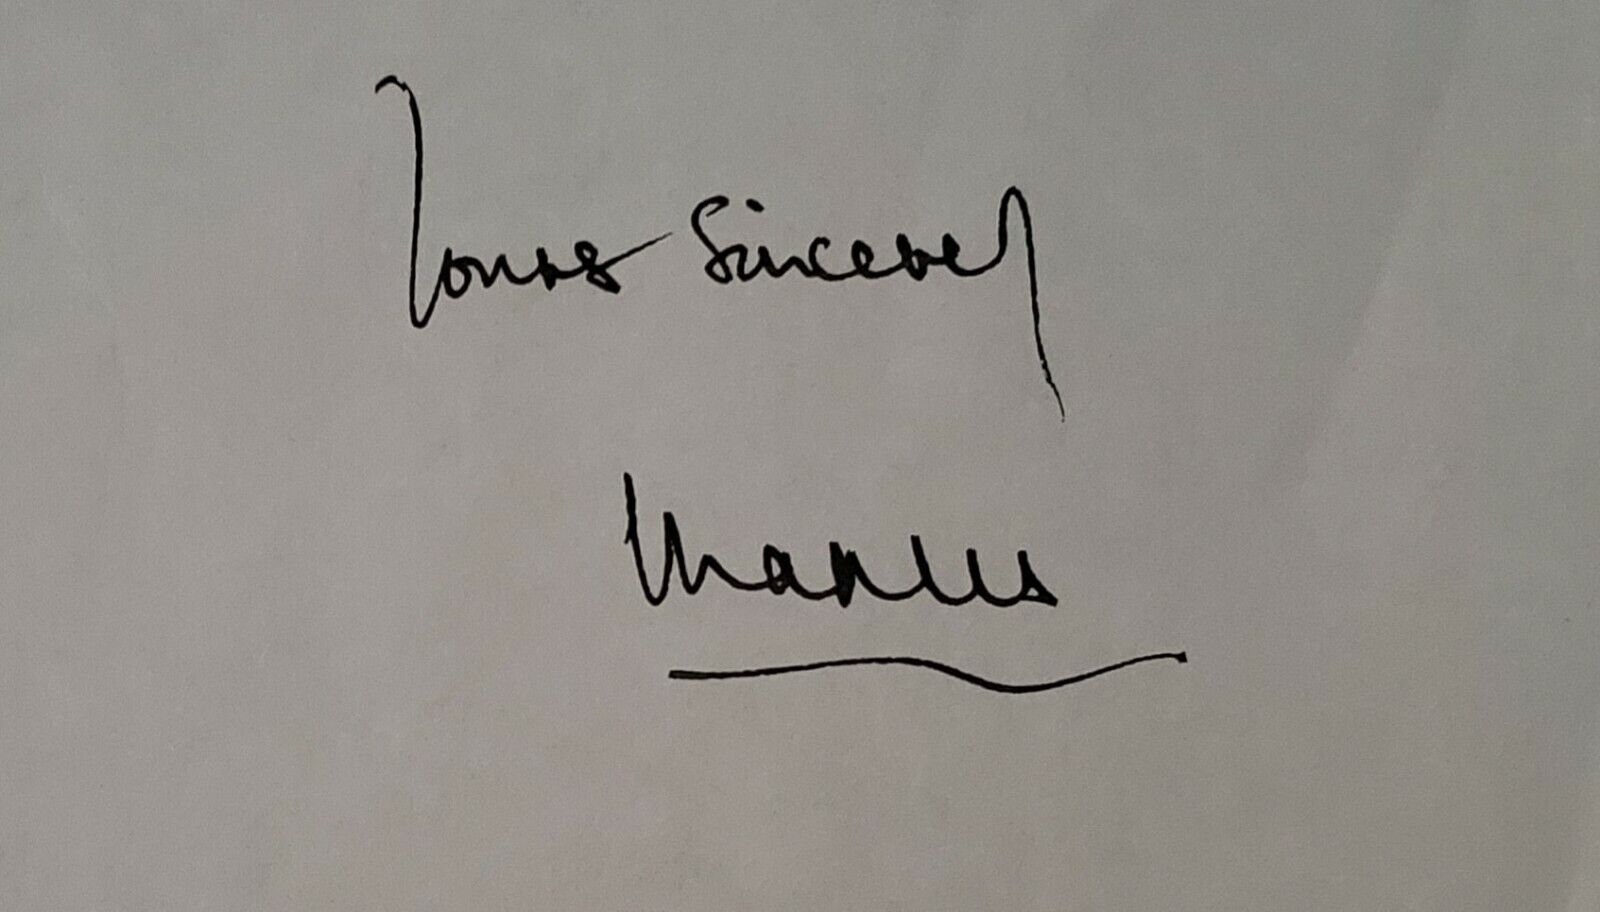 Yours Sincerely
Charles